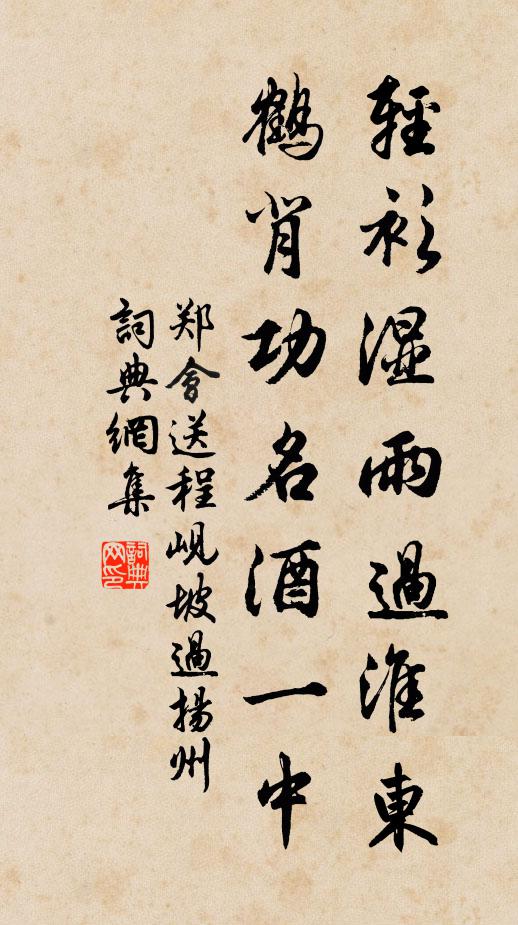 輕衫湿雨過淮東
鶴背功名酒一中
郑會送程峴坡過揚州
詞典網集
詞典网印